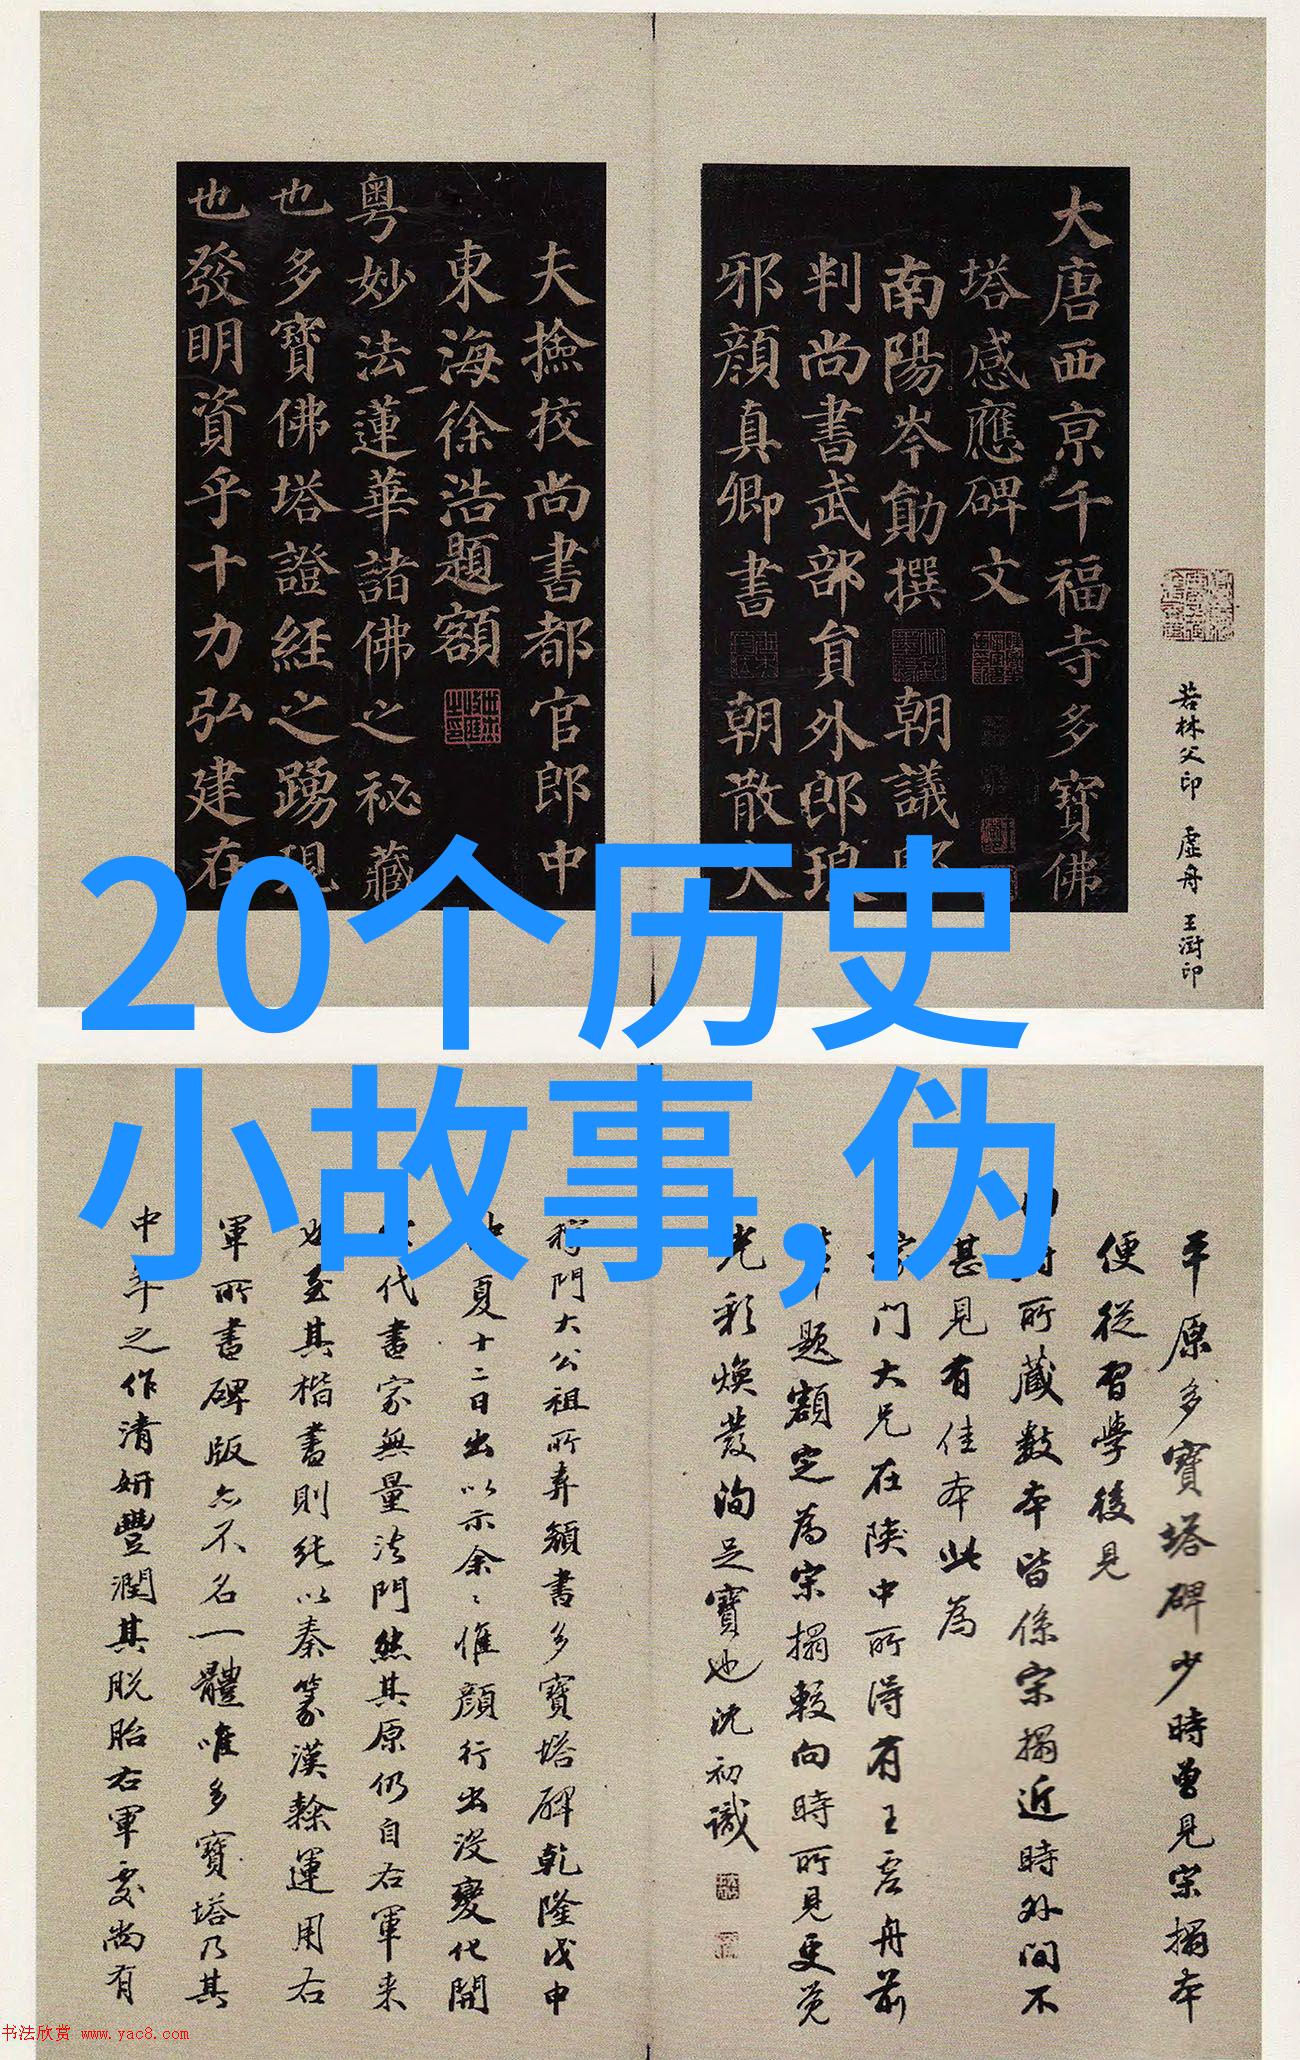 大唐西京千福寺多寶佛
塔感應碑文
南陽岑勛撰
朝議郎
判尚書武部員外郎琅
邪顏真卿書
朝散大
夫撿挍尚書都官郎中
東海徐浩題額
粵妙法蓮華諸佛之祕藏
也多寶佛塔證經之踴現
也發明資乎十力弘建在
若林父印 虛舟 王澍印
20个历史
小故事,伪
平原多寶塔碑少時曾見宋搨本
便從習學後見
所藏數本皆係宋搨近時外間不
甚見有佳本此為
門大兄在陝中所得有王虛舟前
題額定為宋搨較向時所見更覺
光彩煥發洵足寶也沈初識
門大公祖所弆顏書多寶塔碑乾隆戊申
夏十二日出以示余余惟顏行出沒變化開
代書家無量法門然其原仍自右軍來
至其楷書則純以秦篆漢隸運用右
軍所書碑版亦不名一體唯多寶塔乃其
中年之作清妍豐潤其脫胎右軍處尚有
书法欣赏 www.yac8.com